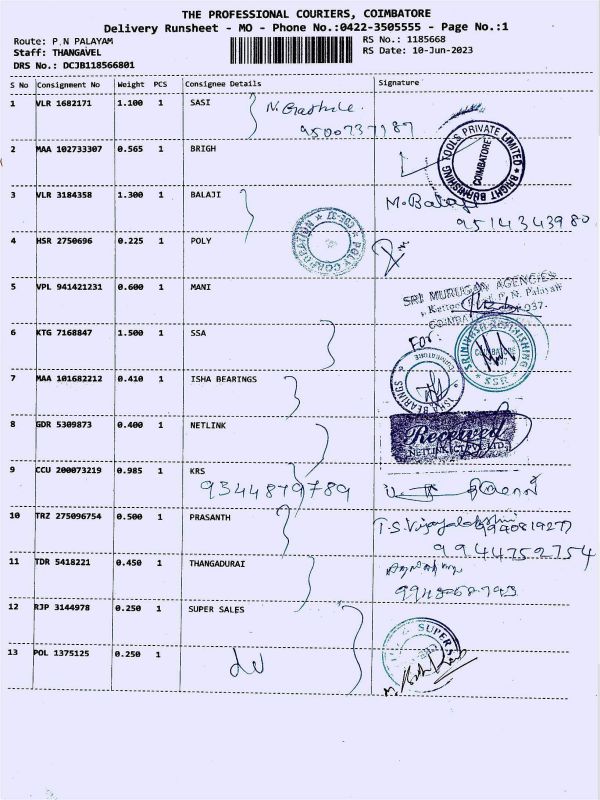 THE PROFESSIONAL COURIERS, COIMBATORE
Delivery Runsheet - MO - Phone No.:0422-3505555 - Page No.:1
Route: P.N PALAYAM
RS No.: 1185668
Staff: THANGAVEL
RS Date: 10-Jun-2023
DRS No.: DCJB118566801
S No Consignment No Weight PCS Consignee Details Signature
1 VLR 1682171 1.100 1 SASI
9500737187
2 MAA 102733307 0.565 1 BRIGH
BRIGHT BURNISHING TOOLS PRIVATE LIMITED
COIMBATORE
3 VLR 3184358 1.300 1 BALAJI M. Balaji
9514343980
4 HSR 2750696 0.225 1 POLY
POLY CORPORATION CBE-37
5 VPL 941421231 0.600 1 MANI
SRI MURUGAN AGENCIES
P. N. Palayam
COIMBATORE 037.
6 KTG 7168847 1.500 1 SSA
For:
7 MAA 101682212 0.410 1 ISHA BEARINGS
ISHA BEARINGS COIMBATORE
8 GDR 5309873 0.400 1 NETLINK
Received
9 CCU 200073219 0.985 1 KRS
9344879789
10 TRZ 275096754 0.500 1 PRASANTH
9944752754
11 TDR 5418221 0.450 1 THANGADURAI
12 RJP 3144978 0.250 1 SUPER SALES
SUPER
13 POL 1375125 0.250 1